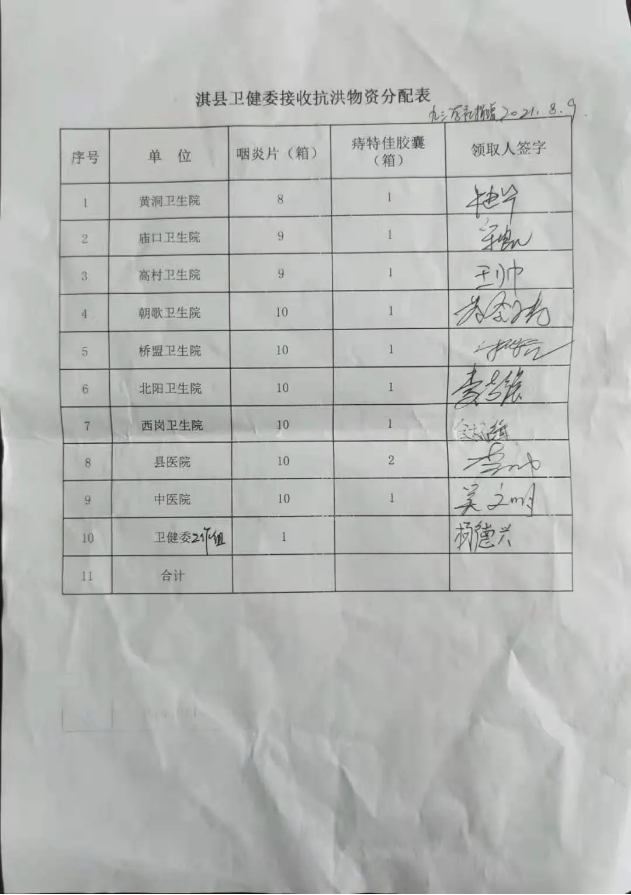 淇县卫健委接收抗洪物资分配表
2021.8.9
序号 单 位 咽炎片（箱） 痔特佳胶囊（箱） 领取人签字
1 黄洞卫生院 8 1
2 庙口卫生院 9 1
3 高村卫生院 9 1 王帅
4 朝歌卫生院 10 1
5 桥盟卫生院 10 1
6 北阳卫生院 10 1
7 西岗卫生院 10 1
8 县医院 10 2
9 中医院 10 1 吴文明
10 卫健委工作组 1 杨德兴
11 合计